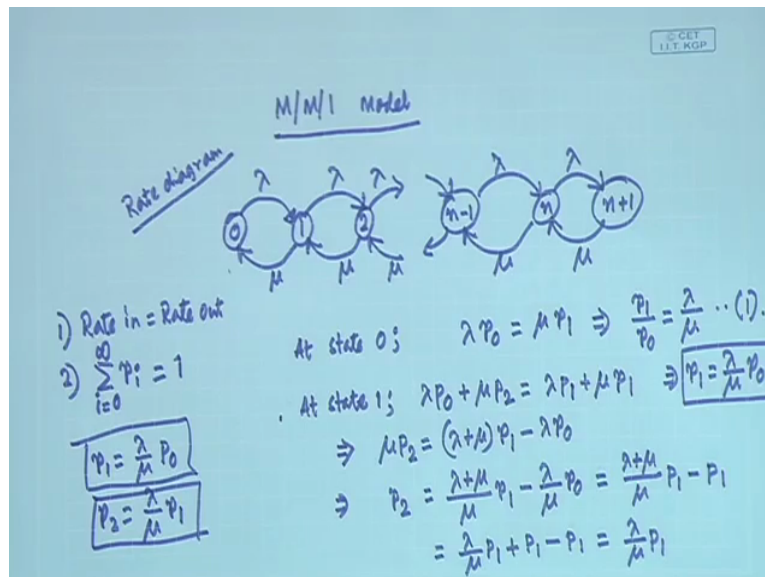 © CET
I.I.T. KGP
M/M/1 Model
Rate diagram
λ λ λ λ λ
0 1 2 n-1 n n+1
μ μ μ μ μ
1) Rate in = Rate out
2) ∞∑i=0 Pi = 1
P1 = λ/μ P0
P2 = λ/μ P1
At state 0; λP0 = μP1 ⇒ P1/P0 = λ/μ ··(1).
At state 1; λP0 + μP2 = λP1 + μP1 ⇒ P1 = λ/μ P0
⇒ μP2 = (λ+μ)P1 - λP0
⇒ P2 = λ+μ/μ P1 - λ/μ P0 = λ+μ/μ P1 - P1
= λ/μ P1 + P1 - P1 = λ/μ P1